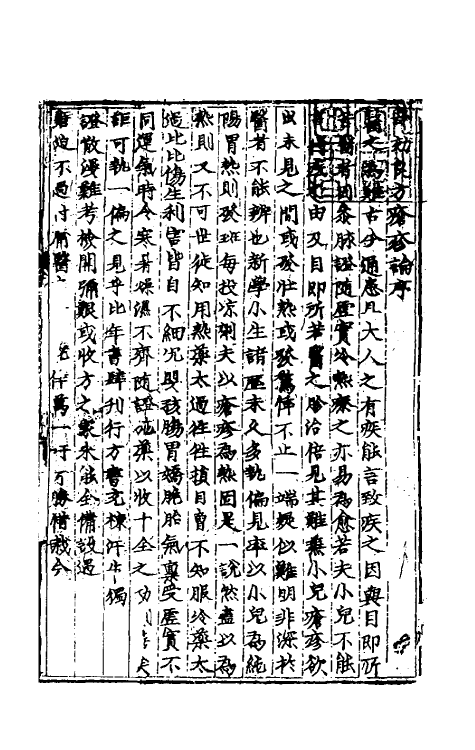 幼良方瘡疹論序
醫之為難古今通患凡大人之有疾能言致疾之因與目即所
醫者因參脉證隨虛實冷熱療之亦易為愈若夫小兒不能
由及目即所若醫之胗治倍見其難蒸小兒瘡疹欲
出未見之間或發壯熱或發驚悸不止一端疑似難明非深於
醫者不能辨也新學小生諸歷未久多執偏見率以小兒為純
陽胃熱則發班每投凉劑夫以瘡疹為熱因是一說然盡以為
熱則又不可世徒知用熱藥太過徃徃損目曾不知服冷藥太
過比比傷生利害皆自不細况嬰孩腸胃嬌脆胎氣稟受虛實不
同運氣時令寒暑燥濕不齊随證施藥以收十全之功夫
詎可執一偏之見乎比年書肆刊行方書充棟汗牛獨
證散漫難考披閱彌艱或收方之未能全備設過
不過付庸醫 萬一吁可勝惜哉今